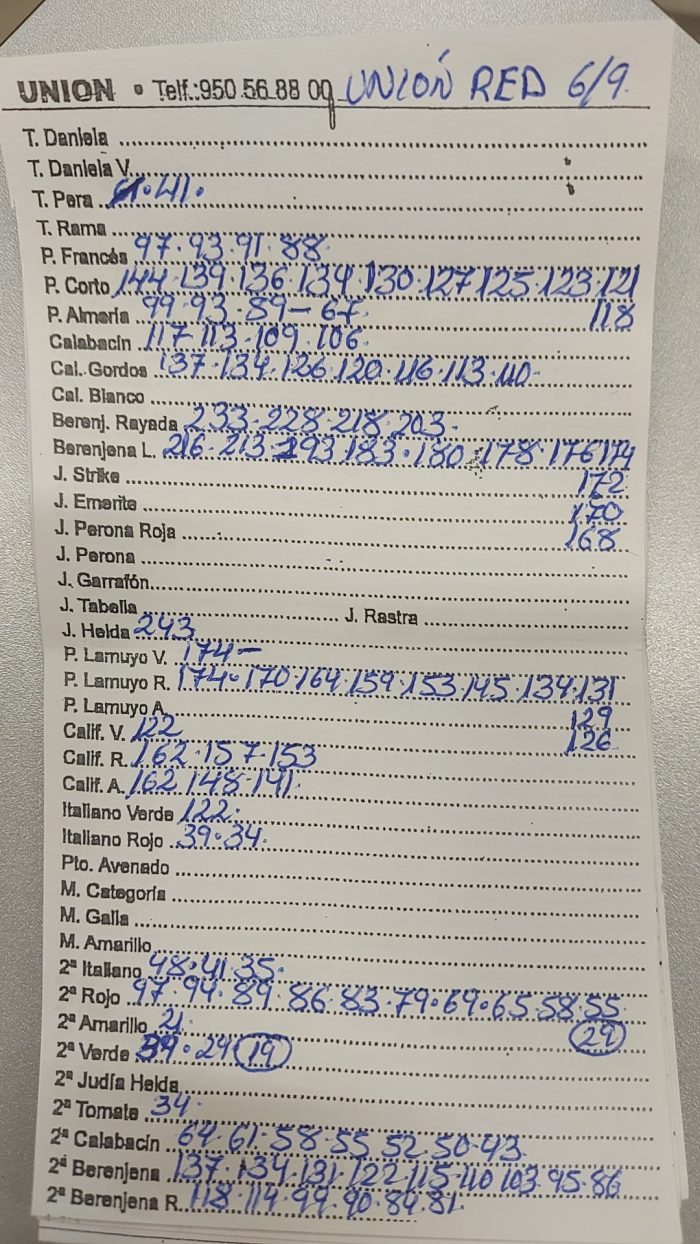 UNION • Telf.:950 56 88 09 UNIÓN RED 6/9.
T. Daniela
T. Daniela V.
T. Pera 41.
T. Rama
P. Francés 97.93.91.88
P. Corto 144.139.136.134.130.127.125.123.121
118
P. Almería 99.93.89-67.
Calabacín 117.113.109.106.
Cal. Gordos 137.134.126.120.116.113.110-
Cal. Blanco
Berenj. Rayada 233.228.218.203.
Berenjena L. 216.213.193.183.180.178.176 174
172
170
168
J. Strike
J. Emerite
J. Perona Roja
J. Perona
J. Garrafón
J. Tabella J. Rastra
J. Helda 243
P. Lamuyo V. 174-
P. Lamuyo R. 174.170.164.159.153.145.134.131
129
126
P. Lamuyo A.
Calif. V. 122
Calif. R. 162.157.153
Calif. A. 162.148.141.
Italiano Verde 122.
Italiano Rojo 39.34.
Pto. Avenado
M. Categoría
M. Galia
M. Amarillo
2ª Italiano 48.41.35.
2ª Rojo 97.94.89.86.83.79.69.65.58.55
29
2ª Amarillo 21.
2ª Verde 39.29 19
2ª Judía Helda
2ª Tomate 34.
2ª Calabacín 64.61.58.55.52.50.43.
2ª Berenjena 137.134.131.122.115.110 103.95.86
2ª Berenjena R. 118.114.99.90.84.81.